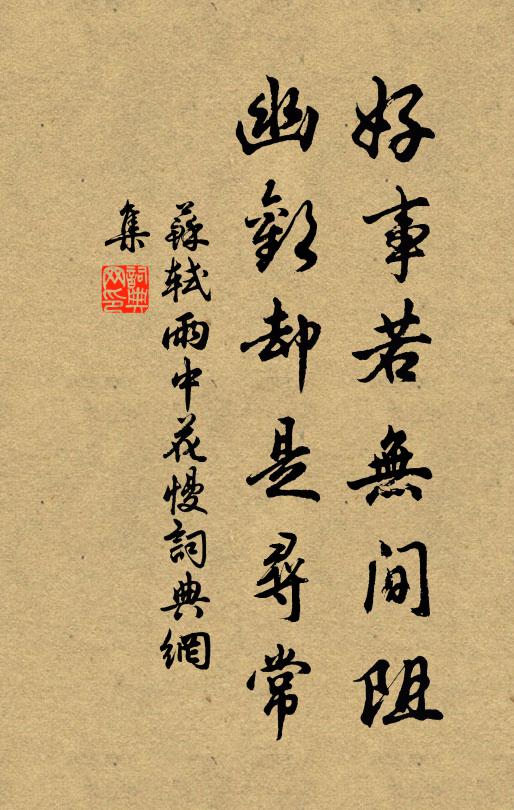 好事若無間阻
幽歡却是尋常
蘇軾雨中花慢詞典網
集
詞典
网印